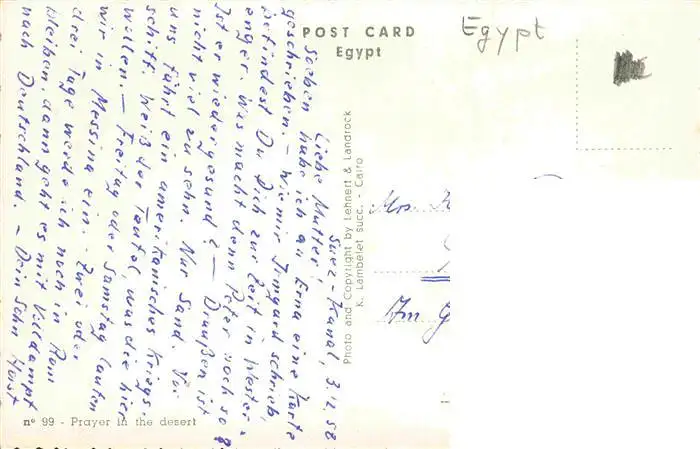 POST CARD
Egypt
Egypt
Suez-Kanal, 3.12.58
Liebe Mutter!
Soeben habe ich an Erna eine Karte
geschrieben. - Wie mir Irmgard schrieb,
befindest Du Dich zur Zeit in Wester-
enger. Was macht denn Peter noch so?
Ist er wieder gesund? - Draußen ist
nicht viel zu sehn. Nur Sand. Vor
uns fährt ein amerikanisches Kriegs-
schiff. Weiß der Teufel, was die hier
wollen. - Freitag oder Samstag laufen
wir in Messina ein. - Zwei oder
drei Tage werde ich noch in Rom
bleiben, dann geht es mit Volldampf
nach Deutschland. - Dein Sohn Horst
Photo and Copyright by Lehnert & Landrock
K. Lambelet succ. - Cairo
Mrs.
Am
n° 99 - Prayer in the desert